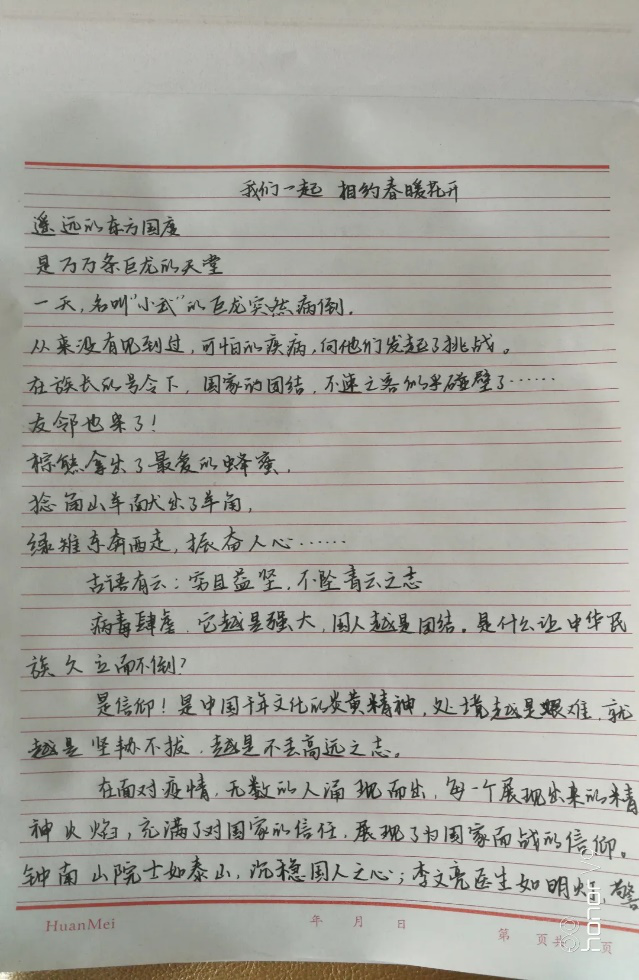 我们一起 相约春暖花开
遥远的东方国度
是万万条巨龙的天堂
一天,名叫“小武”的巨龙突然病倒,
从来没有见到过,可怕的疾病,向他们发起了挑战。
在族长的号令下,国家的团结,不速之客似乎碰壁了……
友邻也来了!
棕熊拿出了最爱的蜂蜜,
捻角山羊献出了羊角,
绿雉东奔西走,振奋人心……
古语有云:穷且益坚,不坠青云之志
病毒肆虐,它越是强大,国人越是团结。是什么让中华民
族久立而不倒?
是信仰!是中国千年文化的炎黄精神,处境越是艰难,就
越是坚韧不拔,越是不丢高远之志。
在面对疫情,无数的人涌现而出,每一个展现出来的精
神火焰,充满了对国家的信任,展现了为国家而战的信仰。
钟南山院士如泰山,沉稳国人之心;李文亮医生如明火,警
HuanMei 年 月 日 第 页 共 页
honor